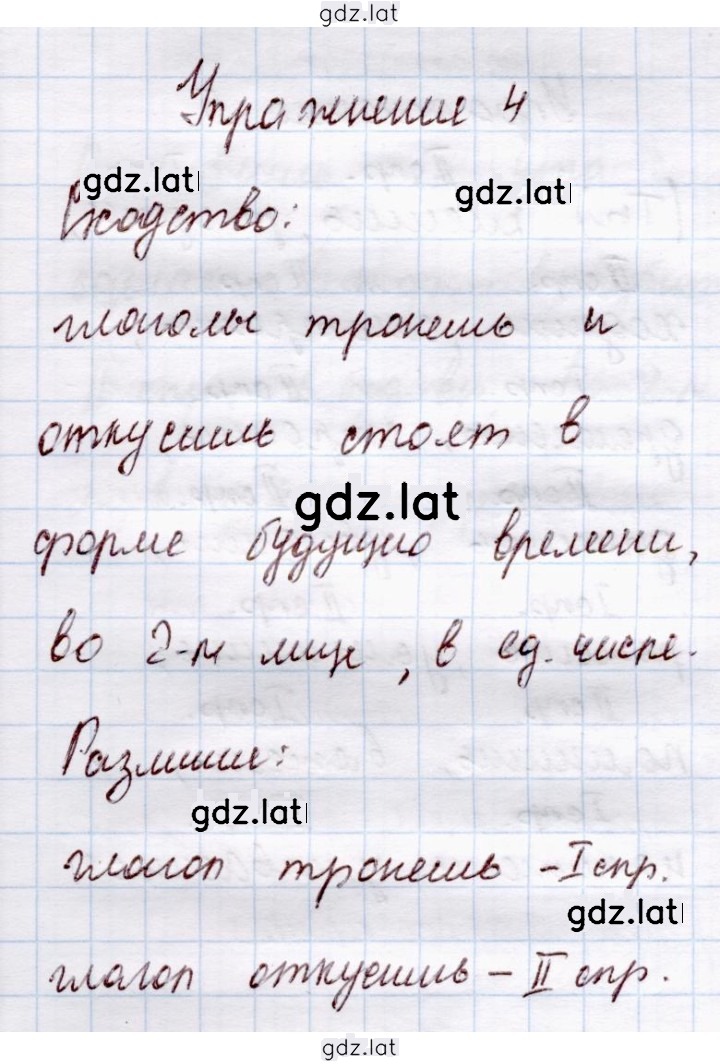 gdz.lat
Упражнение 4
gdz.lat
gdz.lat
Сходство:
глаголы тронешь и
откусишь стоят в
gdz.lat
форме будущего времени,
во 2-м лице, в ед. числе.
Различие:
gdz.lat
глагол тронешь – I спр.
gdz.lat
глагол откусишь – II спр.
gdz.lat